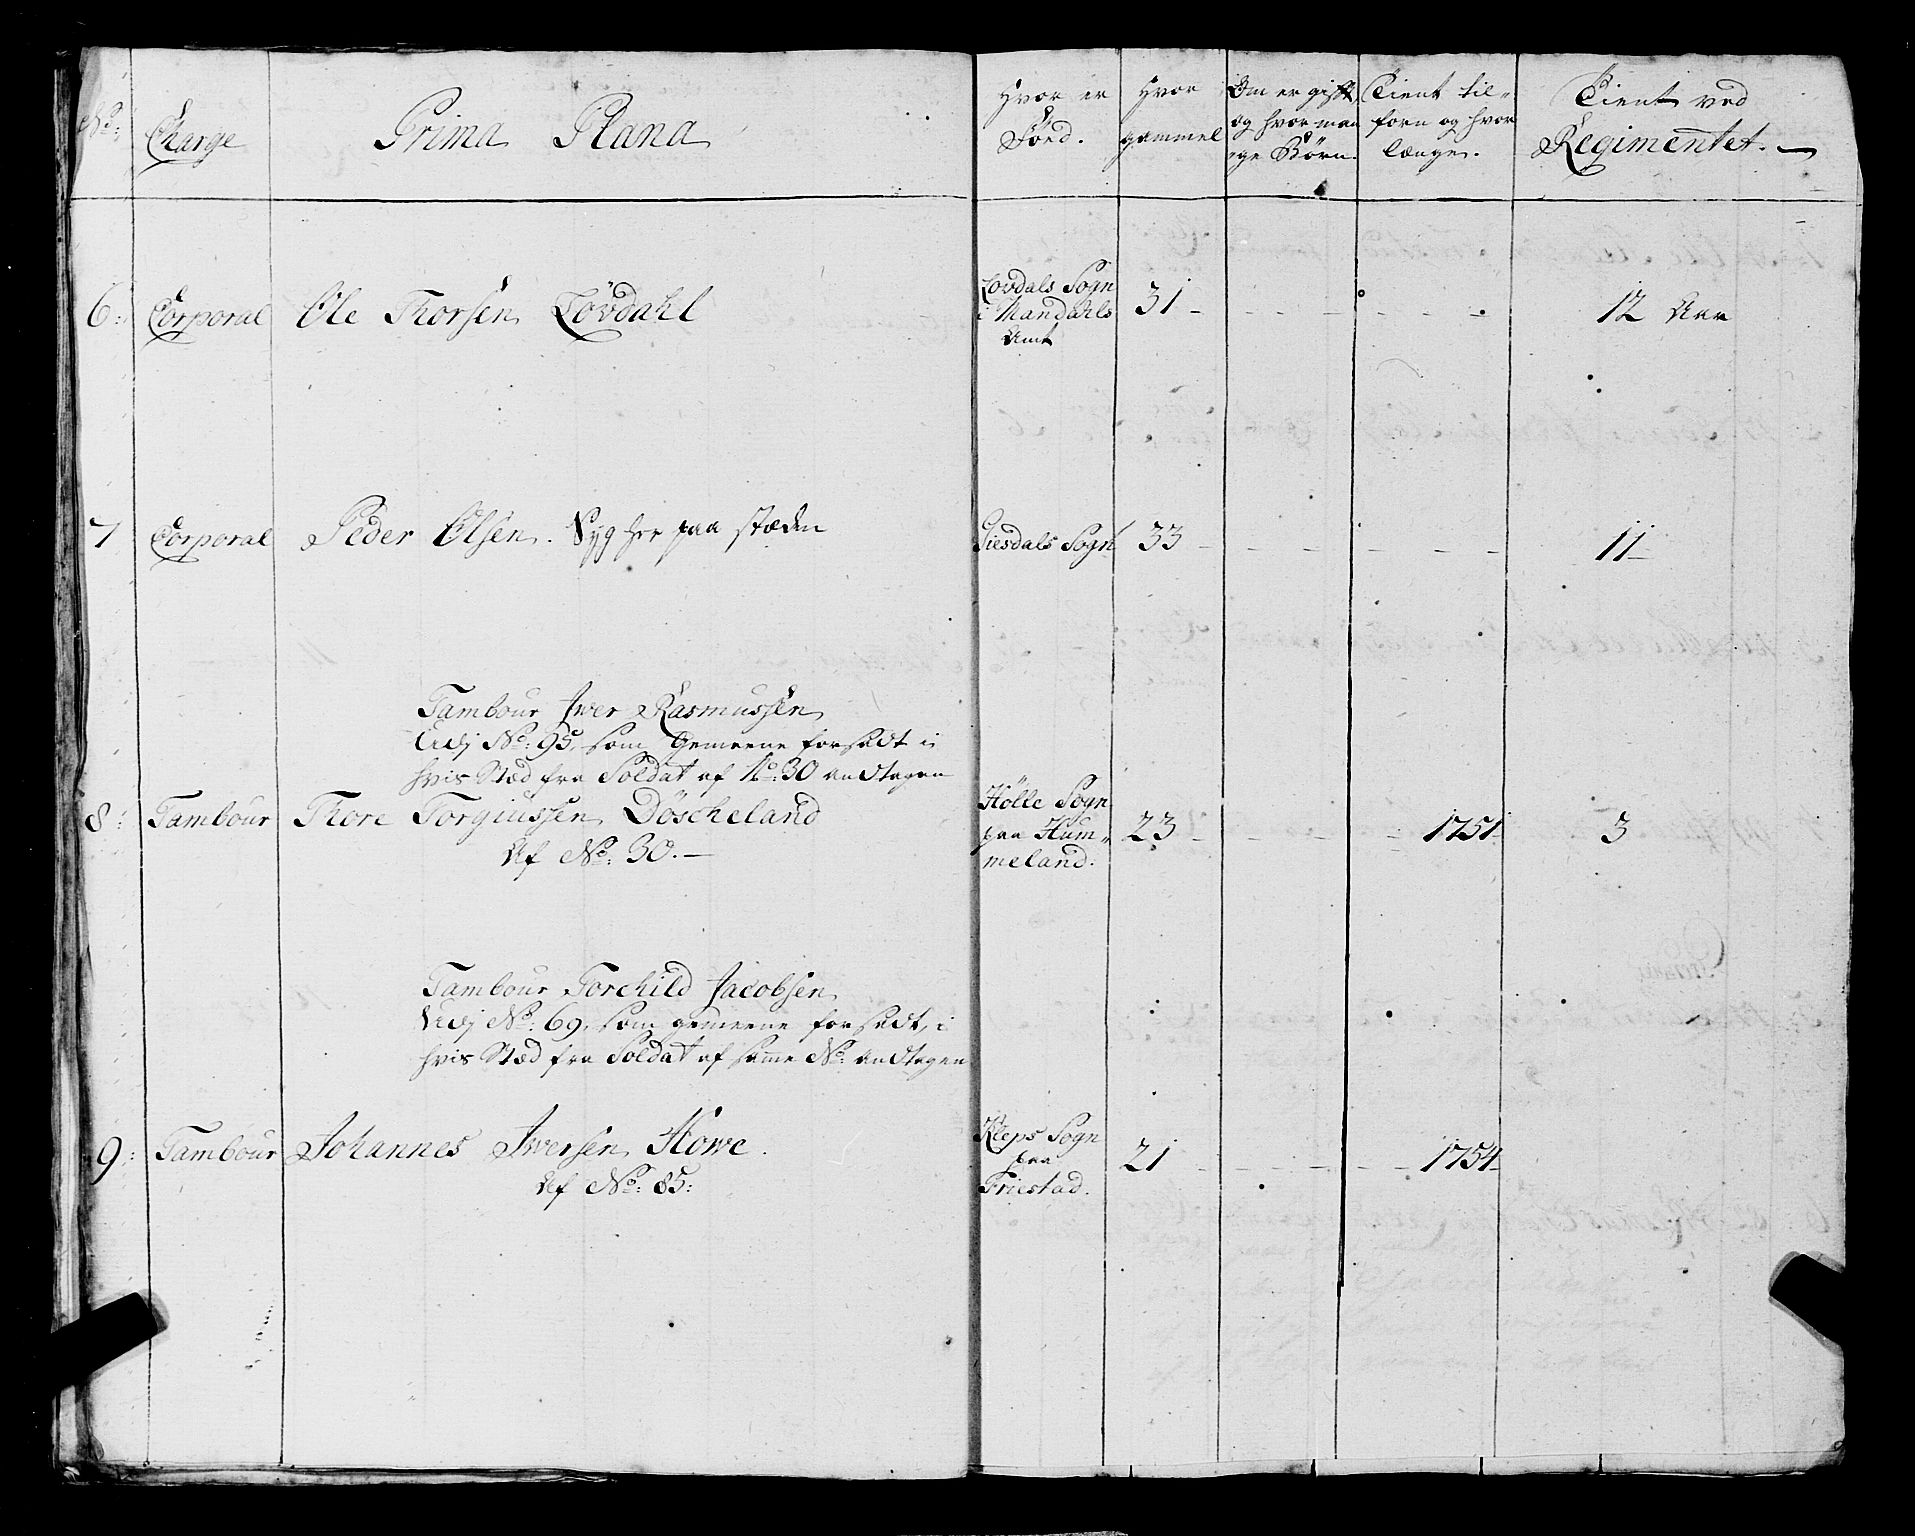 No: Charge Prima Plana
Hvor er
Föed.
Hvor
gammel
Om er gift,
og hvor man
ege Börn.
Tient til-
forn og hvor
længe.
Tient ved
Regimentet. —
6: Corporal Ole Thorsen Lövdahl
Lovdals Sogn
i Mandahls
Amt
31 - - - - - - - 12 Aar
7 Corporal Peder Olsen. Syg her paa stæden
Giesdals Sogn 33 - - - - - - - 11 -
Tambour Iwer Rasmussen
Vidj No: 95, som Gemeene forsadt i
hvis Stæd fra Soldat af No: 30 andtagen
8: Tambour Thore Torgiussen Döscheland
Af No: 30. —
Hölle Sogn
paa Hum-
meland.
23 - - - - 1751 - 3
Tambour Torchild Jacobsen
Vidj No: 69, som gemeene forsadt, i
hvis Stæd fra Soldat af same No: andtagen
9: Tambour Johannes Iwersen Howe.
Af No: 85:
Kleps Sogn
paa
Friestad.
21 - - - - - 1754 -